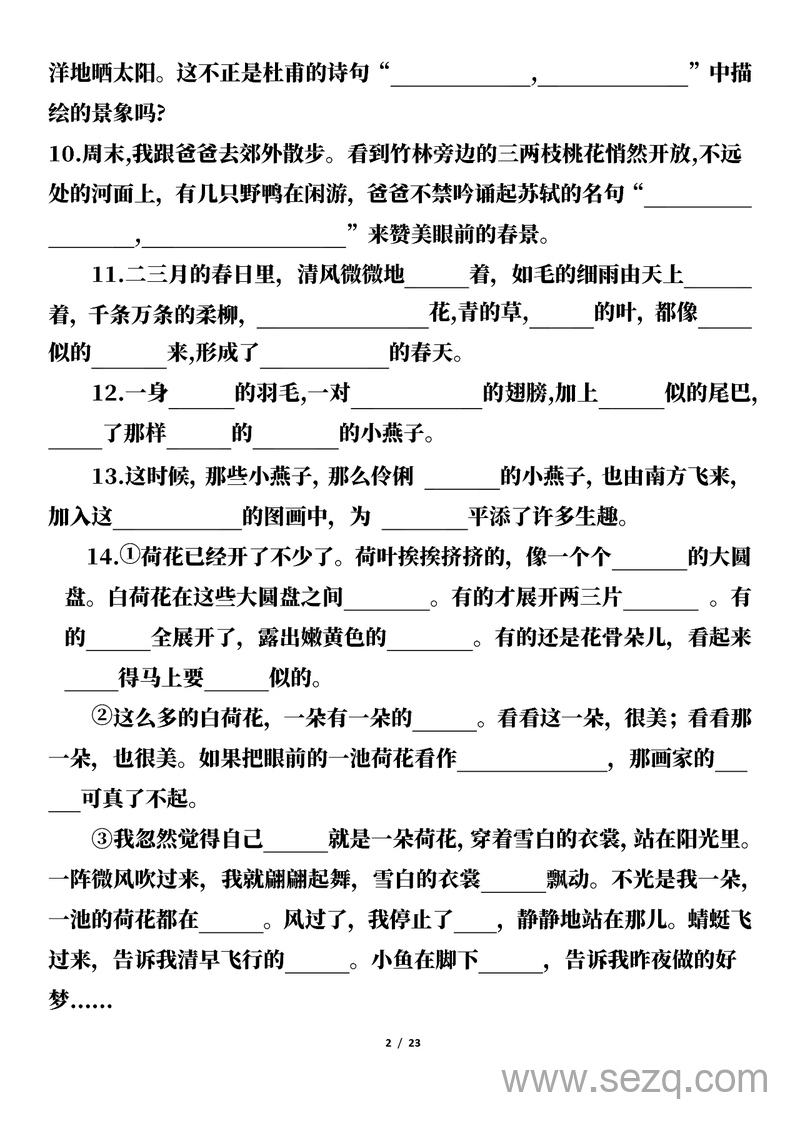 洋地晒太阳。这不正是杜甫的诗句“_____________,______________”中描
绘的景象吗?
10.周末,我跟爸爸去郊外散步。看到竹林旁边的三两枝桃花悄然开放,不远
处的河面上，有几只野鸭在闲游，爸爸不禁吟诵起苏轼的名句“__________
________,___________________”来赞美眼前的春景。
11.二三月的春日里，清风微微地______着，如毛的细雨由天上______
着，千条万条的柔柳，________________花,青的草,______的叶，都像_____
似的_______来,形成了____________的春天。
12.一身______的羽毛,一对____________的翅膀,加上______似的尾巴,
_____了那样______的________的小燕子。
13.这时候, 那些小燕子, 那么伶俐 _______的小燕子, 也由南方飞来,
加入这____________的图画中，为 ________平添了许多生趣。
14.①荷花已经开了不少了。荷叶挨挨挤挤的，像一个个_______的大圆
盘。白荷花在这些大圆盘之间________。有的才展开两三片_______ 。有
的______全展开了，露出嫩黄色的________。有的还是花骨朵儿，看起来
_____得马上要______似的。
②这么多的白荷花，一朵有一朵的______。看看这一朵，很美；看看那
一朵，也很美。如果把眼前的一池荷花看作______________，那画家的___
___可真了不起。
③我忽然觉得自己______就是一朵荷花, 穿着雪白的衣裳, 站在阳光里。
一阵微风吹过来，我就翩翩起舞，雪白的衣裳______飘动。不光是我一朵,
一池的荷花都在______。风过了，我停止了____，静静地站在那儿。蜻蜓飞
过来，告诉我清早飞行的______。小鱼在脚下______，告诉我昨夜做的好
梦……
2 / 23
www.sezq.com